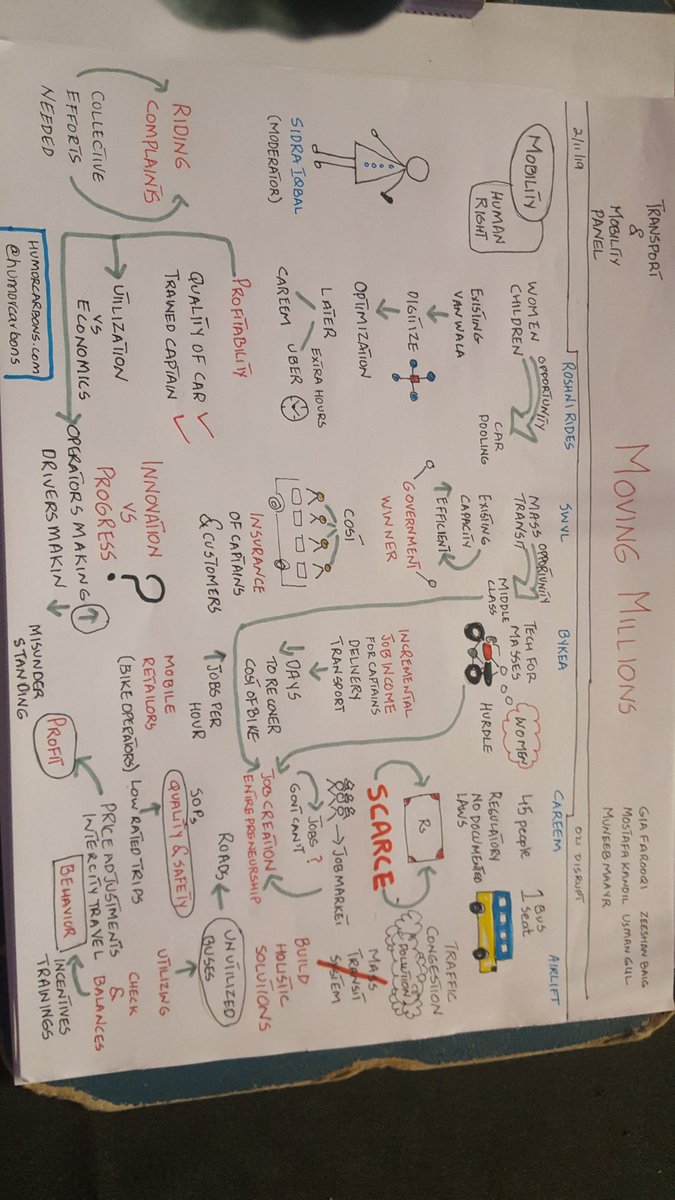 TRANSPORT
&
MOBILITY
PANEL
MOVING MILLIONS
GIA FAROOQI
ZEESHAN BAIG
MOSTAFA KANDIL
USMAN GUL
MUNEEB MAAYR
2/11/19
021 DISRUPT
ROSHNI RIDES
SWVL
BYKEA
CAREEM
AIRLIFT
MOBILITY
HUMAN
RIGHT
SIDRA IQBAL
(MODERATOR)
RIDING
COMPLAINTS
COLLECTIVE
EFFORTS
NEEDED
WOMEN
CHILDREN
OPPORTUNITY
CAR
POOLING
EXISTING
VAN WALA
DIGITIZE
OPTIMIZATION
LATER
CAREEM
UBER
EXTRA HOURS
PROFITABILITY
QUALITY OF CAR
TRAINED CAPTAIN
UTILIZATION
VS
ECONOMICS
MASS
TRANSIT
OPPORTUNITY
MIDDLE
CLASS
EXISTING
CAPACITY
EFFICIENT
GOVERNMENT
WINNER
COST
INSURANCE
OF CAPTAINS
& CUSTOMERS
INNOVATION
VS
PROGRESS?
OPERATORS MAKING
DRIVERS MAKIN
TECH FOR
MASSES
WOMEN
HURDLE
INCREMENTAL
JOB INCOME
FOR CAPTAINS
DELIVERY
TRANSPORT
DAYS
TO RECOVER
COST OF BIKE
JOBS PER
HOUR
MOBILE
RETAILORS
(BIKE OPERATORS)
MISUNDER
STANDING
PROFIT
45 people
1 BUS
seat
REGULATORY
NO DOCUMENTED
LAWS
Rs
SCARCE
JOBS ?
GOVT CAN'T
JOB MARKET
JOB CREATION
ENTREPRENEURSHIP
SOPs
QUALITY & SAFETY
LOW RATED TRIPS
PRICE ADJUSTMENTS
INTERCITY TRAVEL
BEHAVIOR
TRAFFIC
CONGESTION
POLUTION
MASS
TRANSIT
SYSTEM
BUILD
HOLISTIC
SOLUTIONS
UNUTILIZED
BUSES
ROADS
UTILIZING
CHECK
&
BALANCES
INCENTIVES
TRAININGS
HUMORCARBONS.COM
@humorcarbons